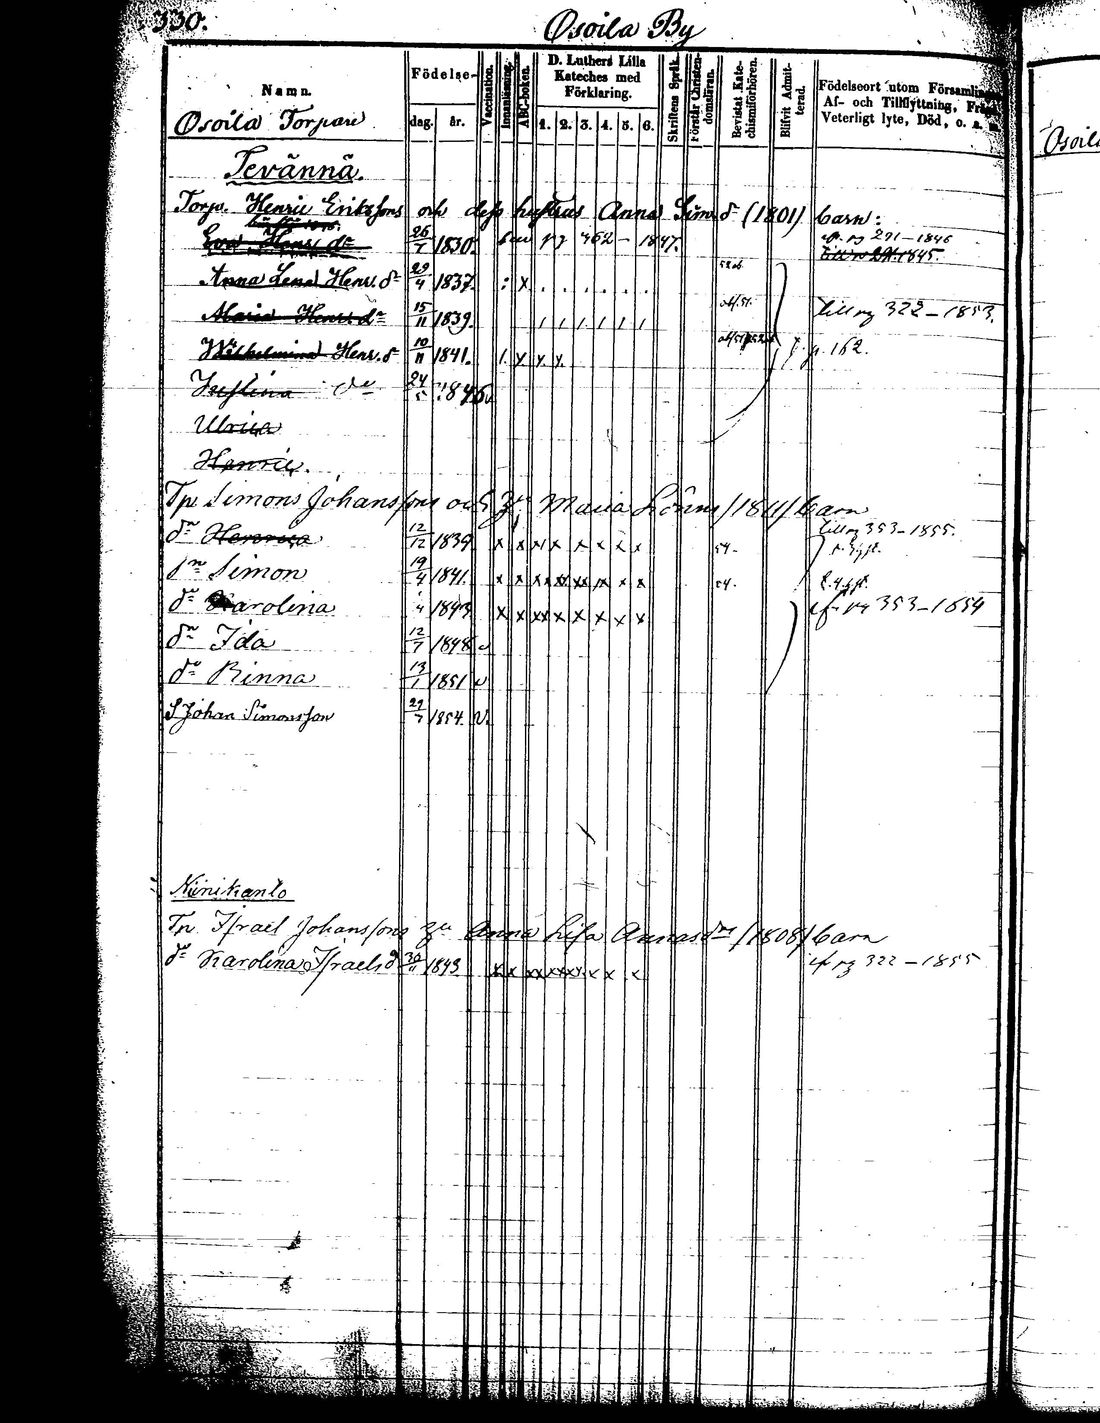 330.
Osoila By
Namn.
Födelse-
dag.
år.
Vaccination.
Innanläsning.
ABC-boken.
D. Luthers Lilla Kateches med Förklaring.
1. 2. 3. 4. 5. 6.
Skriftens Språk.
Förstår Christendomsläran.
Bevistat Katechismiförhören.
Blifvit Admitterad.
Födelseort utom Församlin
Af- och Tillflyttning, Fr
Veterligt lyte, Död, o. a.
Osoila Torpare
Osoila
Tevännä.
Torp. Henric Erikssons och dess hustrus Anna Sims dr (1801) barn:
Eva Henrs dr 26/7 1830. pg 462 – 1847. pg 291 – 1846
1845.
Anna Lena Henr. dr 29/4 1837. : x . . . . . .
Maria Henrs dr 15/11 1839. / / / / / / till pg 322 – 1853.
Wilhelmina Henr. dr 10/11 1841. x x x p. 162.
Justina dr 24/5 1846
Ulrica
Henric.
Tp Simons Johanssons och Maria Lönns /1811/ barn
dr Henrica 12/12 1839 x x x x x x x x 54. till pg 353 – 1855.
sn Simon 19/4 1841. x x x x x x x x 54.
dr Karolina /4 1843 x x x x x x x x pg 353 – 1854
dr Ida 12/7 1848 v
dr Rinna 13/1 1851 v
S Johan Simonsson 29/7 1854. v.
Niinikanto
Tp. Israel Johanssons Anna Lisa Annasdrs /1808/ barn
dr Karolina Israels dr 30/11 1843 x x xx xxxx x x x pg 322 – 1855